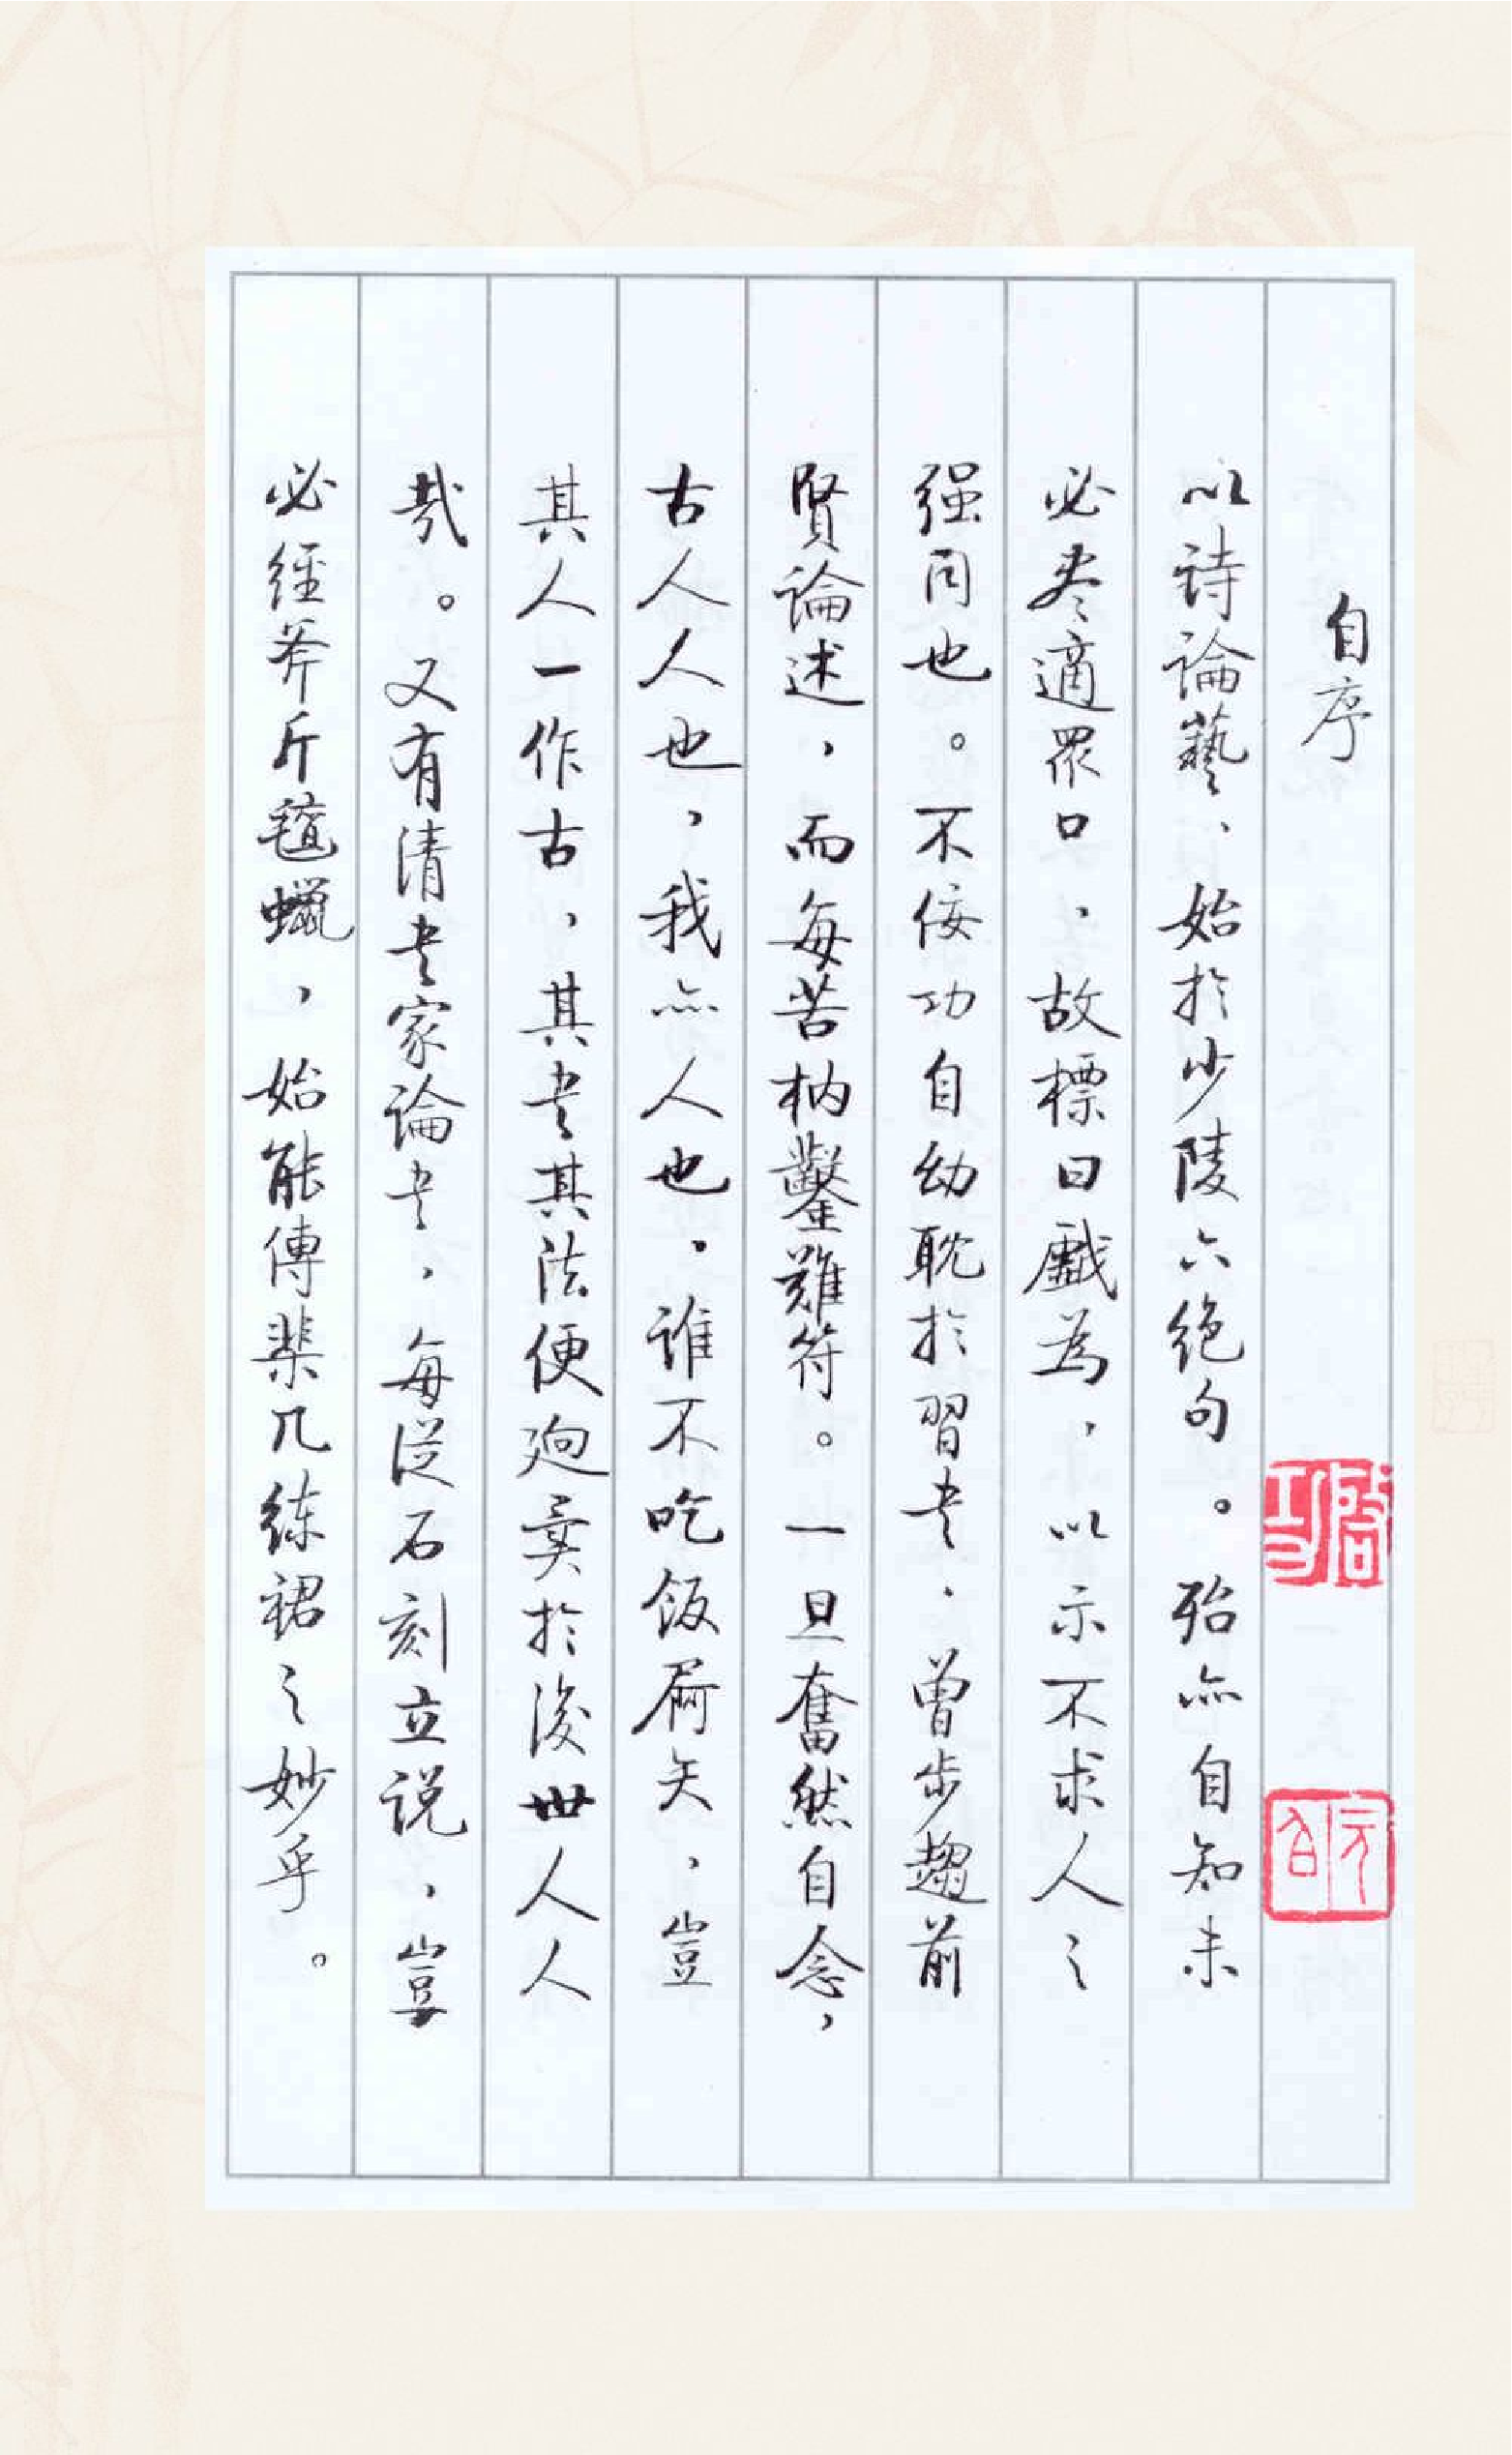 自序
以詩論藝、始於少陵六絶句。殆亦自知未
必尽適眾口、故標曰戲為，以示不求人之
强同也。不佞功自幼耽於習书、曾步趨前
賢論述，而每苦枘鑿難符。一旦奮然自念，
古人人也，我亦人也。誰不吃饭屙矢、豈
其人一作古，其书其法便迥異於後世人人
哉。又有清书家論书，每從石刻立説，豈
必經斧斤氊蠟，始能傳棐几練裙之妙乎。
啟功
元白